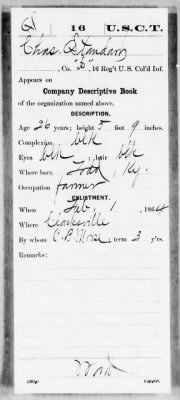 S 16 U.S.C.T.
Chas Standard
, Co. "B", 16 Reg't U. S. Col'd Inf.
Appears on
Company Descriptive Book
of the organization named above.
DESCRIPTION.
Age 26 years; height 5 feet 9 inches.
Complexion blk
Eyes blk ; hair blk
Where born Todd , Ky.
Occupation farmer
ENLISTMENT.
When Feb. 1 , 1864
Where Clarksville
By whom C. B. Morse ; term 3 y'rs.
Remarks:
Copyist.